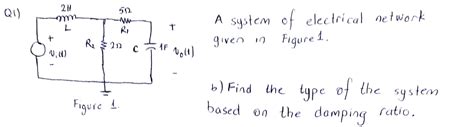 Q1)
2H
5Ω
L
R₁
+
A system of electrical network
given in Figure 1.
+
v₁(t)
-
R₂
2Ω
C
1F
v₀(t)
-
Figure 1
b) Find the type of the system
based on the damping ratio.